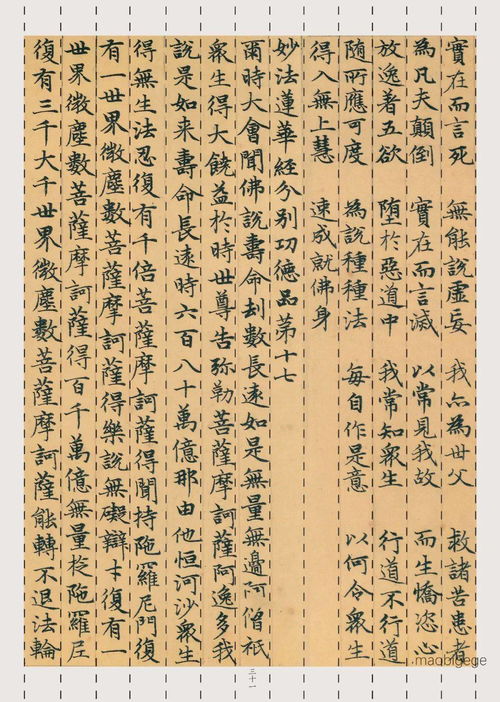 實在而言死　無能說虛妄　我亦為世父　救諸苦患者
為凡夫顛倒　實在而言滅　以常見我故　而生憍恣心
放逸著五欲　墮於惡道中　我常知眾生　行道不行道
随所應可度　為說種種法　每自作是意　以何令眾生
得入無上慧　速成就佛身
妙法蓮華經分別功德品苐十七
爾時大會聞佛說壽命劫數長遠如是無量無邊阿僧祇
眾生得大饒益於時世尊告弥勒菩薩摩訶薩阿逸多我
說是如来壽命長遠時六百八十萬億那由他恒河沙眾生
得無生法忍復有千倍菩薩摩訶薩得聞持陁羅尼門復
有一世界微塵數菩薩摩訶薩得樂說無礙辯才復有一
世界微塵數菩薩摩訶薩得百千萬億無量旋陁羅尼
復有三千大千世界微塵數菩薩摩訶薩能轉不退法輪
三十一
maobigege